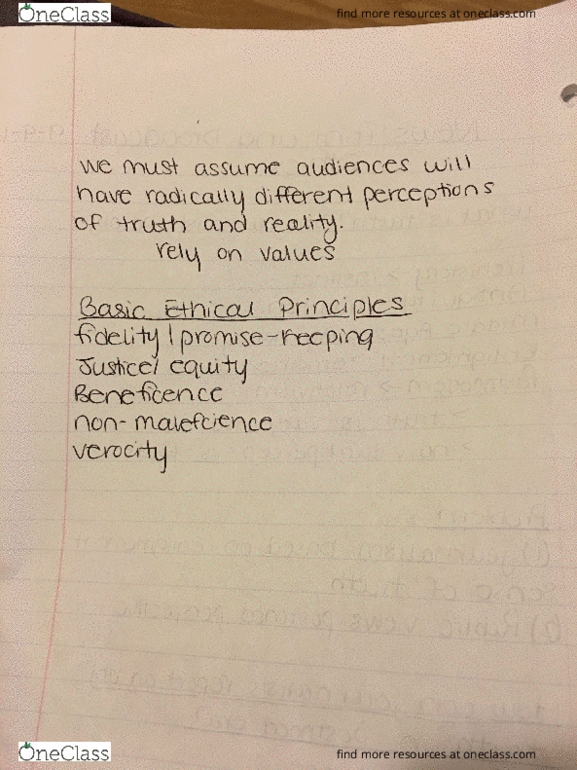 OneClass
find more resources at oneclass.com
we must assume audiences will
have radically different perceptions
of truth and reality.
rely on values
Basic Ethical Principles
fidelity/promise-keeping
Justice/equity
Beneficence
non-malefcience
verocity
OneClass
find more resources at oneclass.com